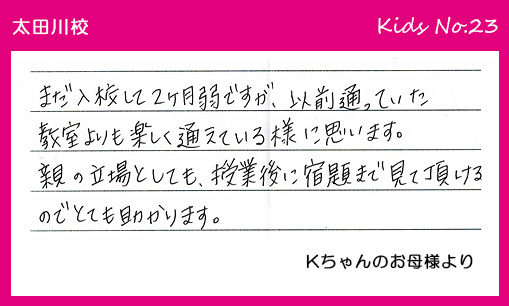 太田川校
Kids No.23
まだ入校して2ヶ月弱ですが、以前通っていた
教室よりも楽しく通えている様に思います。
親の立場としても、授業後に宿題まで見て頂ける
のでとても助かります。
Kちゃんのお母様より